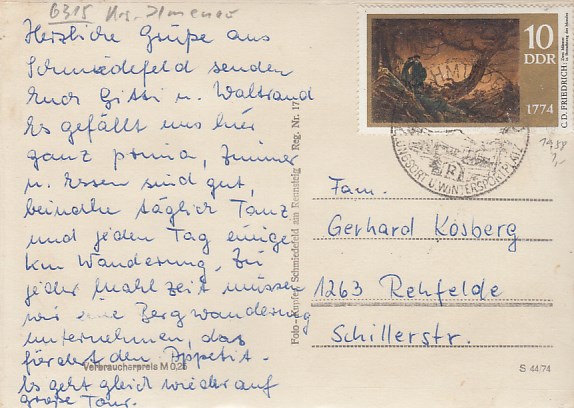 6315 Krs. Ilmenau
Herzliche Grüße aus
Schmiedefeld senden
Euch Gitti u. Waltraud
Es gefällt uns hier
ganz prima, Zimmer
u. Essen sind gut,
beinahe täglich Tanz
und jeden Tag einige
km Wanderung, Zu
jeder Mahlzeit müssen
wir eine Bergwanderung
unternehmen, das
fördert den Appetit.
Es geht gleich wieder auf
große Tour.
Verbraucherpreis M 0,25
Schmiedefeld am Rennsteig Reg. Nr. 17
10
DDR
1774
C. D. FRIEDRICH:
U. WINTERSPORTPLATZ
Fam.
Gerhard Kösberg
1263 Rehfelde
Schillerstr.
S 44/74